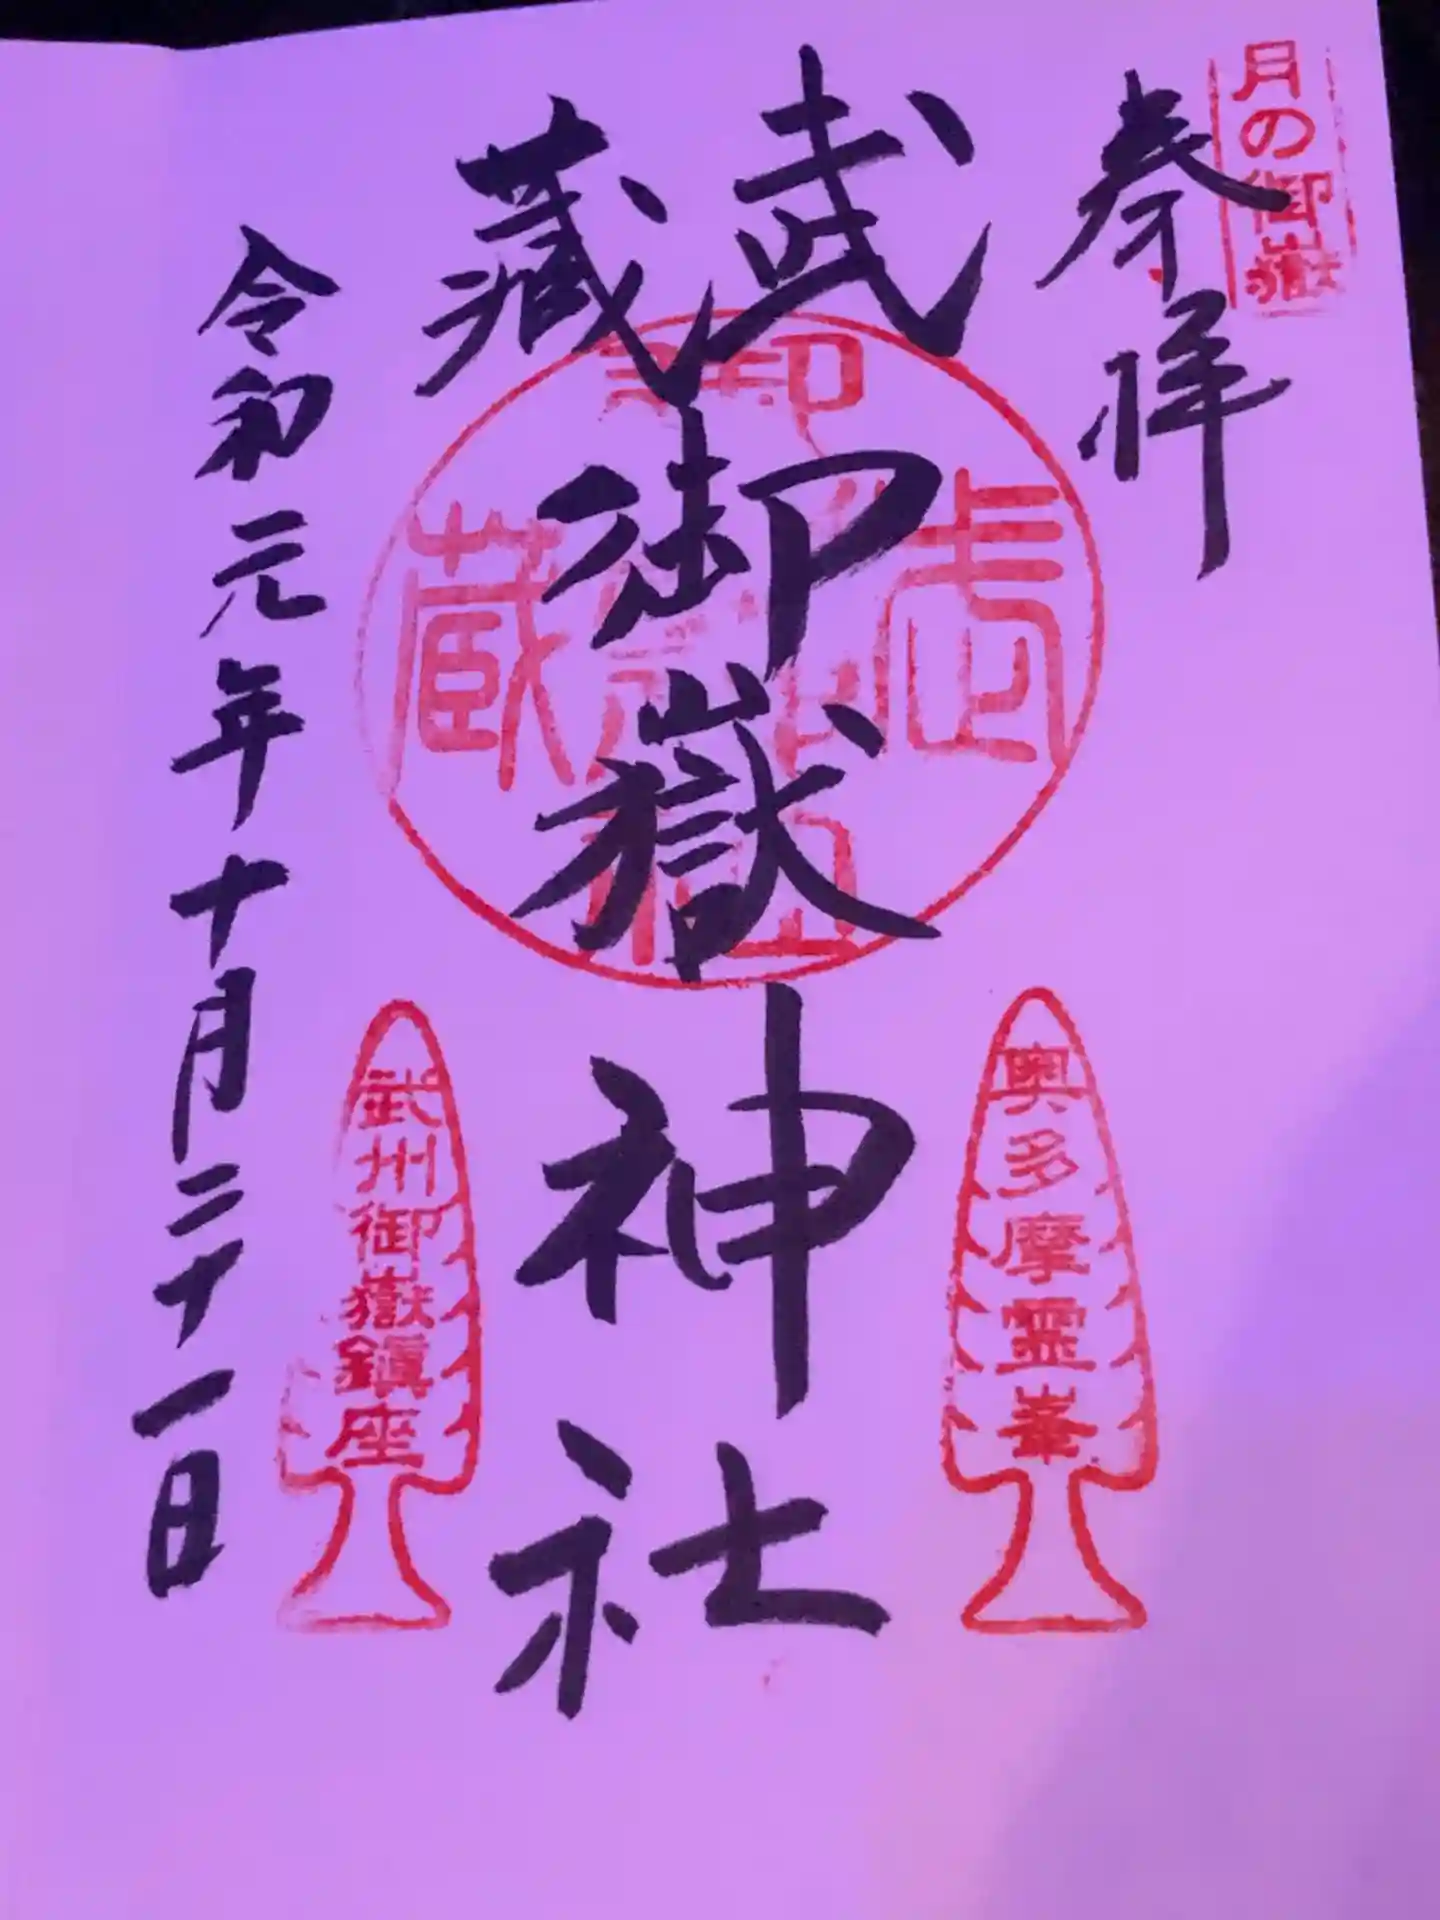 月の御嶽
奉拝
武蔵
御嶽神社
武蔵御嶽神社
奥多摩霊峯
武州御嶽鎮座
令和元年十月二十一日